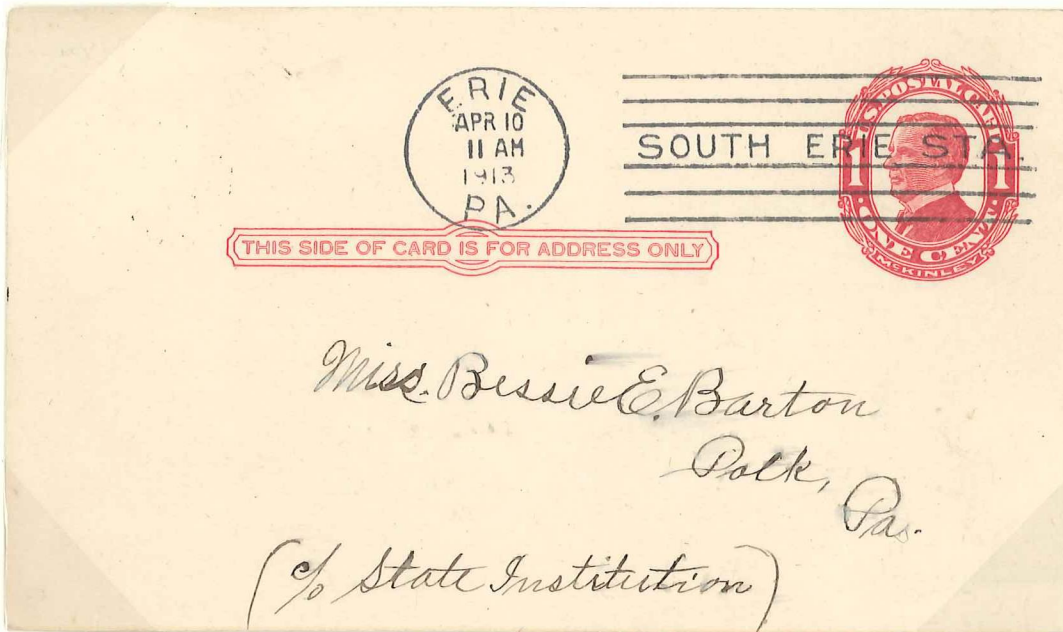 ERIE
APR 10
11 AM
1913
PA.
SOUTH ERIE STA.
U.S. POSTAL CARD
1 1
·ONE CENT·
McKINLEY
THIS SIDE OF CARD IS FOR ADDRESS ONLY
Miss. Bessie E. Barton
Polk,
Pa.
(c/o State Institution)